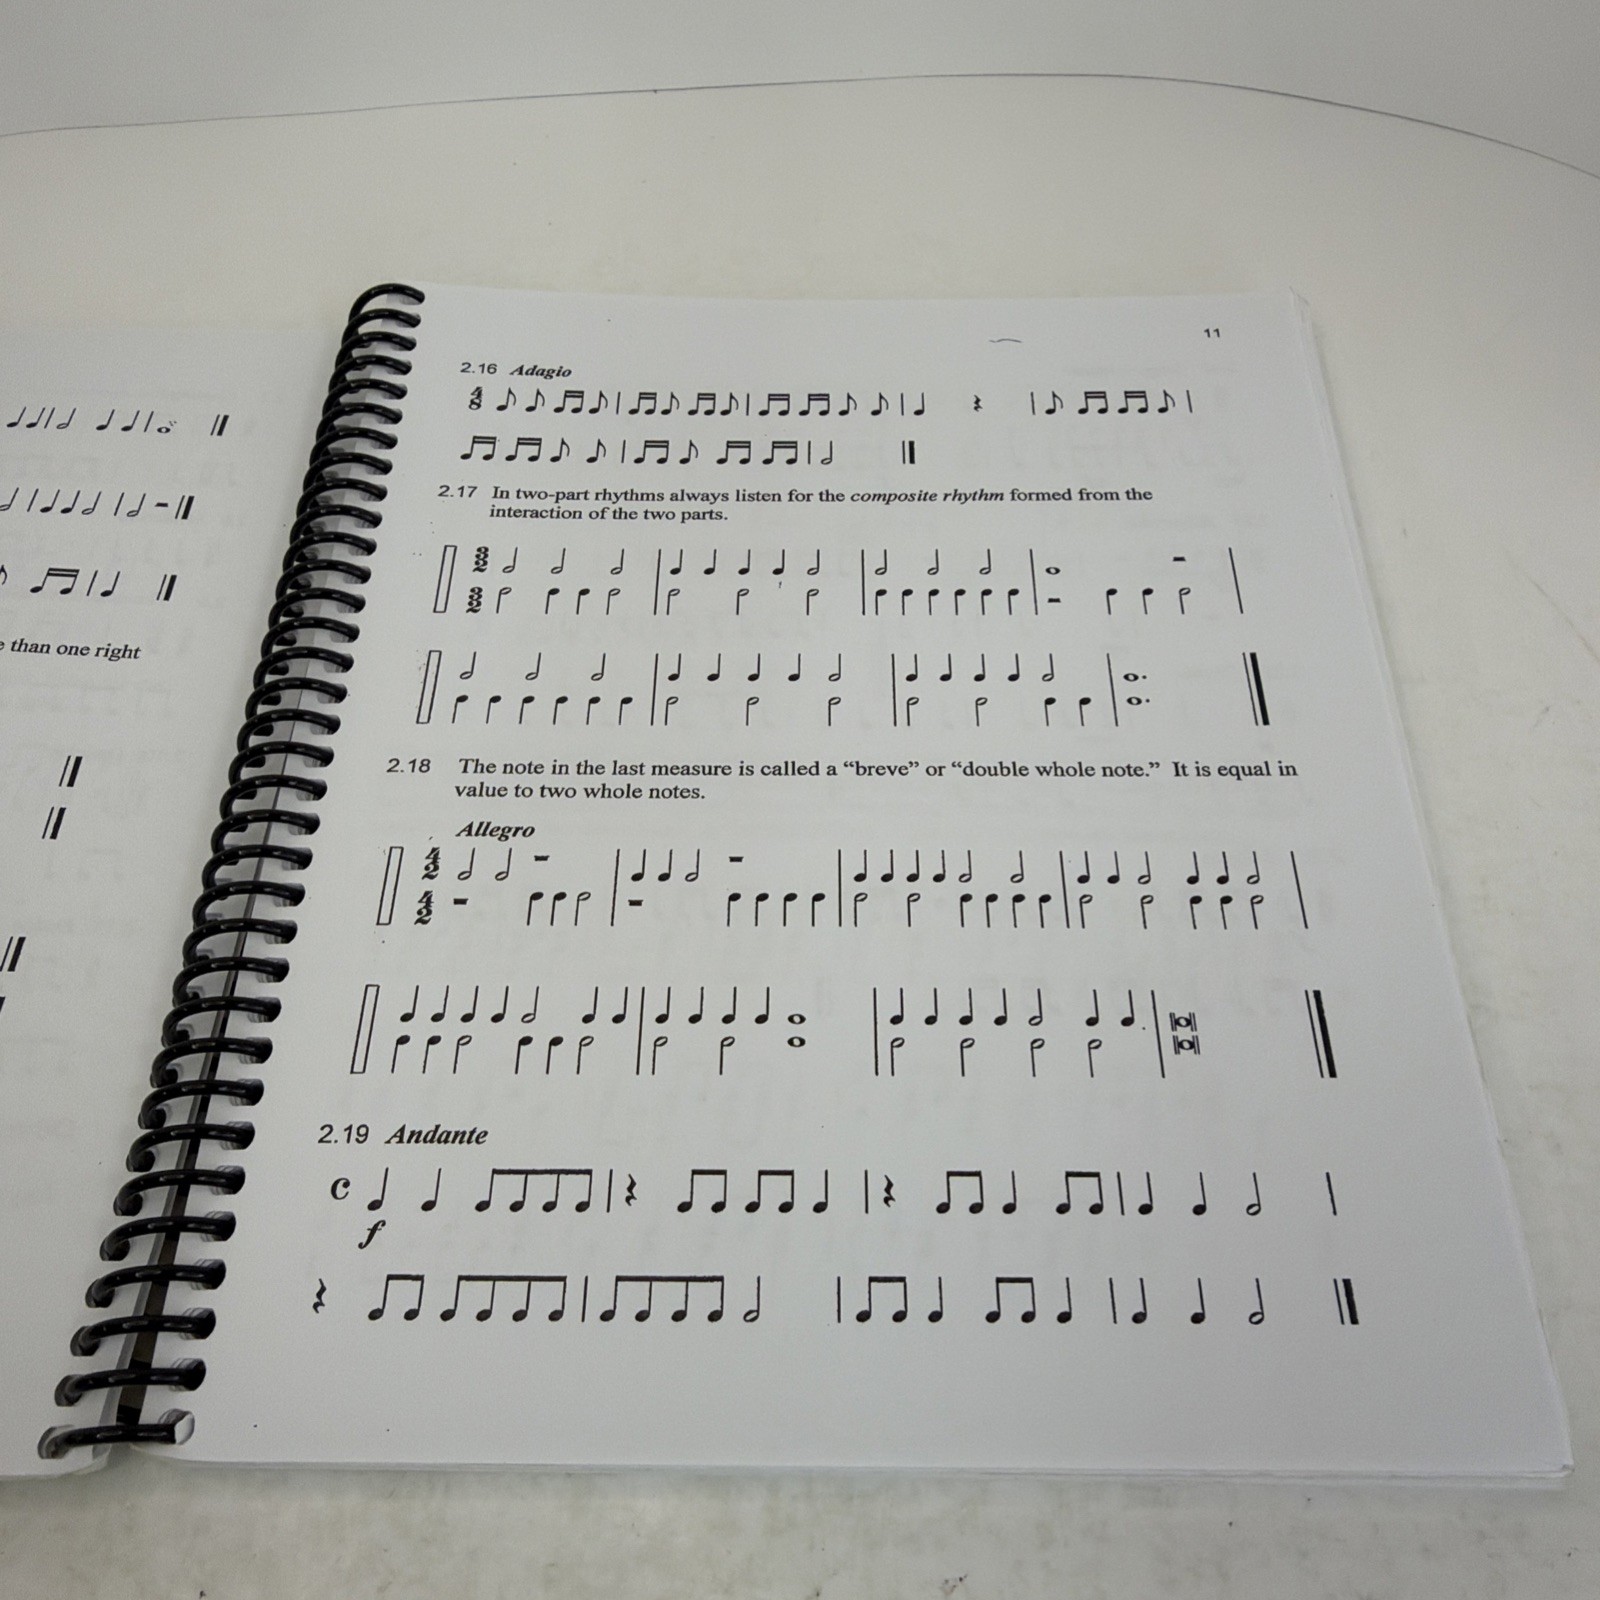 e than one right
11
2.16 Adagio
4
8
2.17 In two-part rhythms always listen for the composite rhythm formed from the
interaction of the two parts.
3
2
3
2
2.18 The note in the last measure is called a “breve” or “double whole note.” It is equal in
value to two whole notes.
Allegro
4
2
4
2
2.19 Andante
c
f